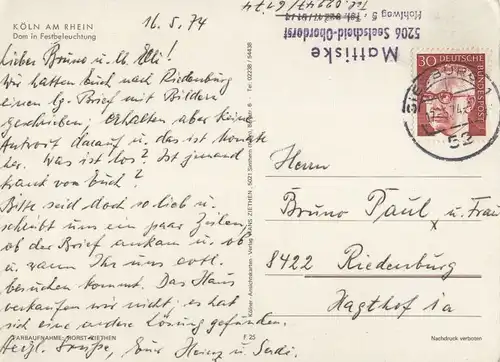 KÖLN AM RHEIN
Dom in Festbeleuchtung
16.5.74
Lieber Bruno u. lb. Elli!
Wir hatten Euch nach Riedenburg
einen lg. Brief mit Bildern
geschrieben, erhalten aber keine
Antwort darauf u. das ist Monate
her. Was ist los? Ist jemand
krank von Euch?
Bitte seid doch so lieb u.
schreibt uns ein paar Zeilen,
ob der Brief ankam u. ob
u. wann Ihr uns evtl.
besuchen kommt. Das Haus
verkaufen wir nicht, es hat
sich eine andere Lösung gefunden.
Herzl. Grüße, Eure Heinz u.
FARBAUFNAHME: HORST ZIETHEN
F 25
Kölner Ansichtskarten Verlag HANS ZIETHEN, 5021 Sinthern
Tel: 02238 / 54438
Mattiske
5206 Seelscheid-Oberdorst
Hohlweg 5
30
DEUTSCHE BUNDESPOST
SIEGBURG 1
52
Herrn
Bruno Paul u. Frau
8422 Riedenburg
Hagthof 1a
Nachdruck verboten